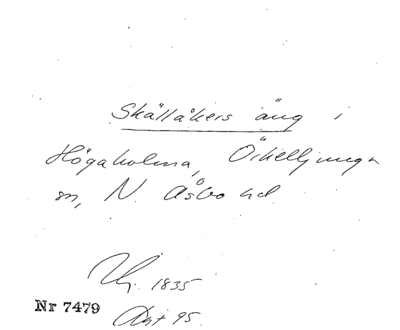 Skälläkers äng i
Högaholma, Örkelljunga
sn, N. Åsbo hd
1835
Nr 7479
Akt 95.